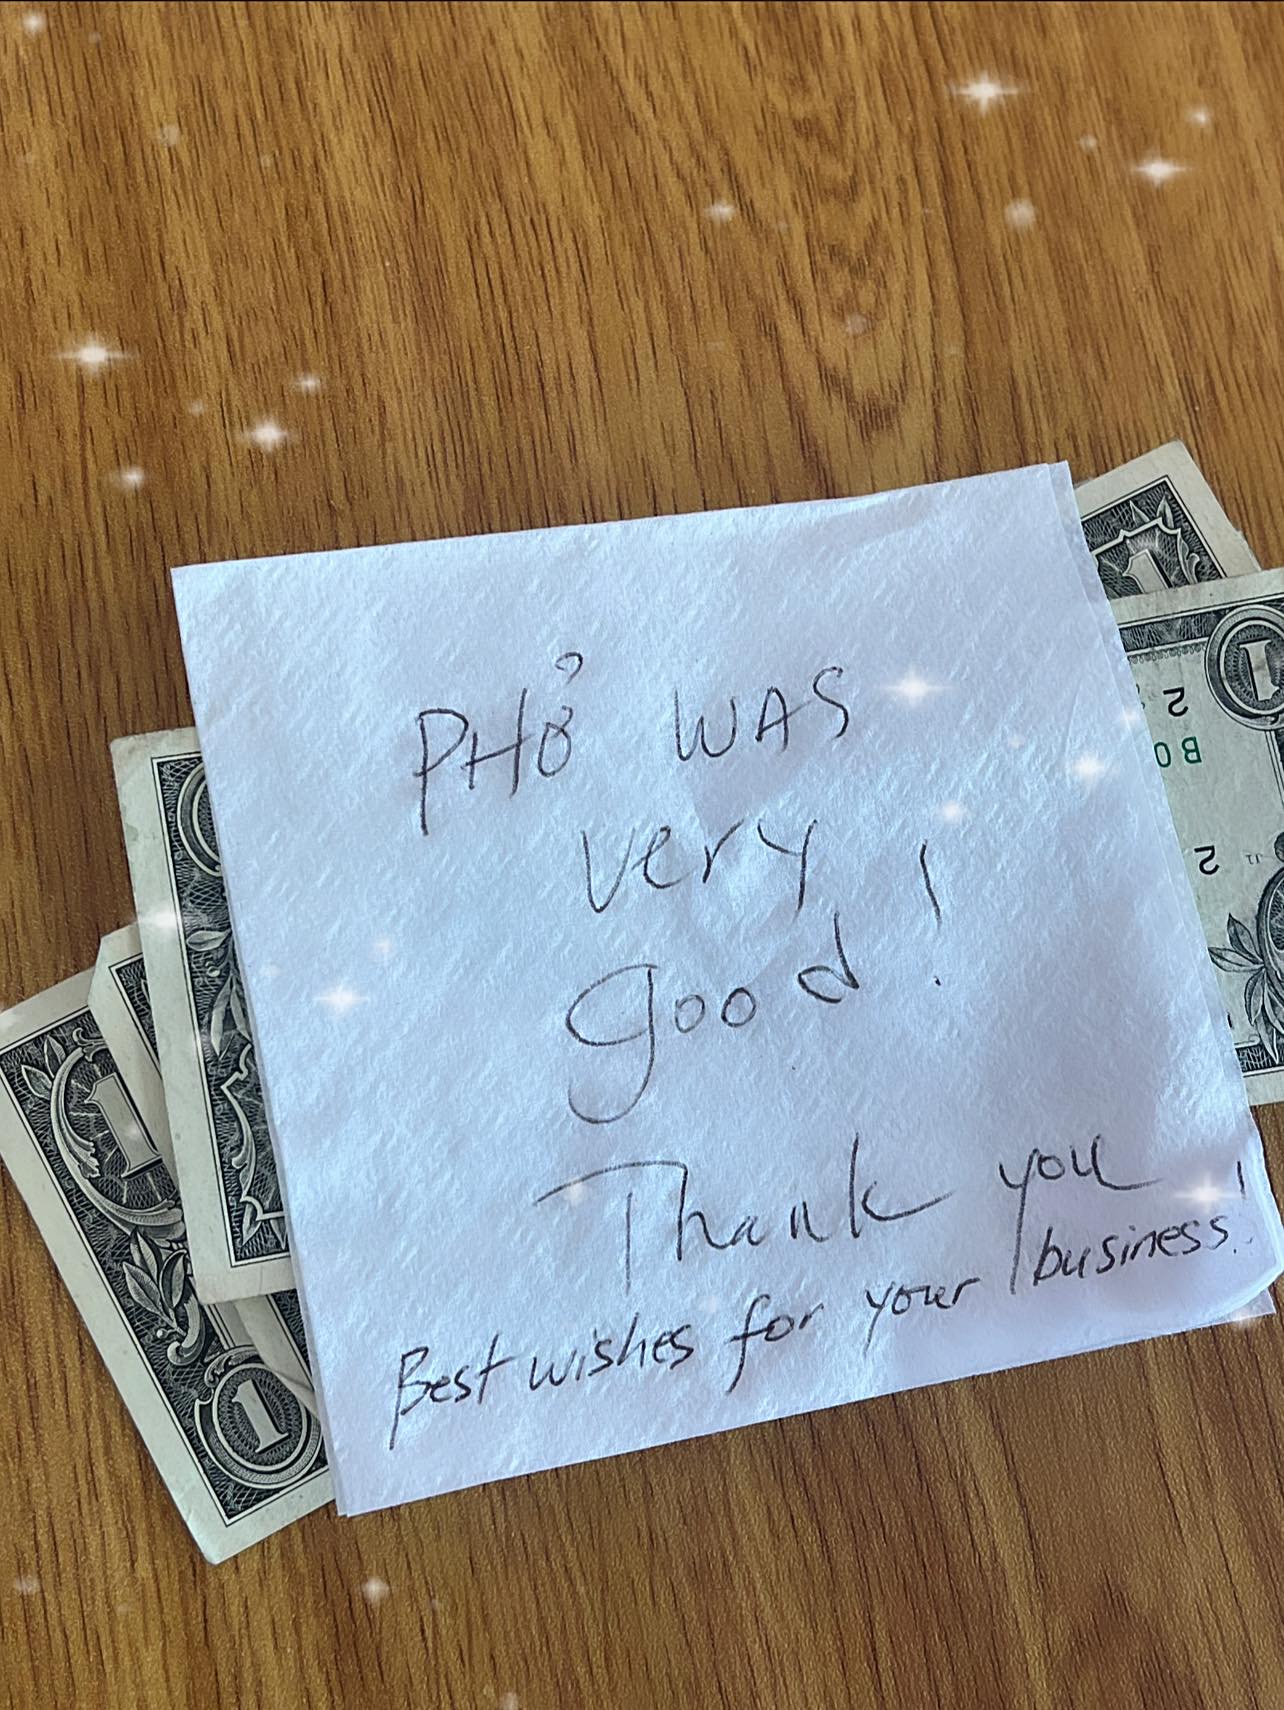 PHỞ WAS
very
good!
Thank you
Best wishes for your business!
1
1
1
1
2
BO
2